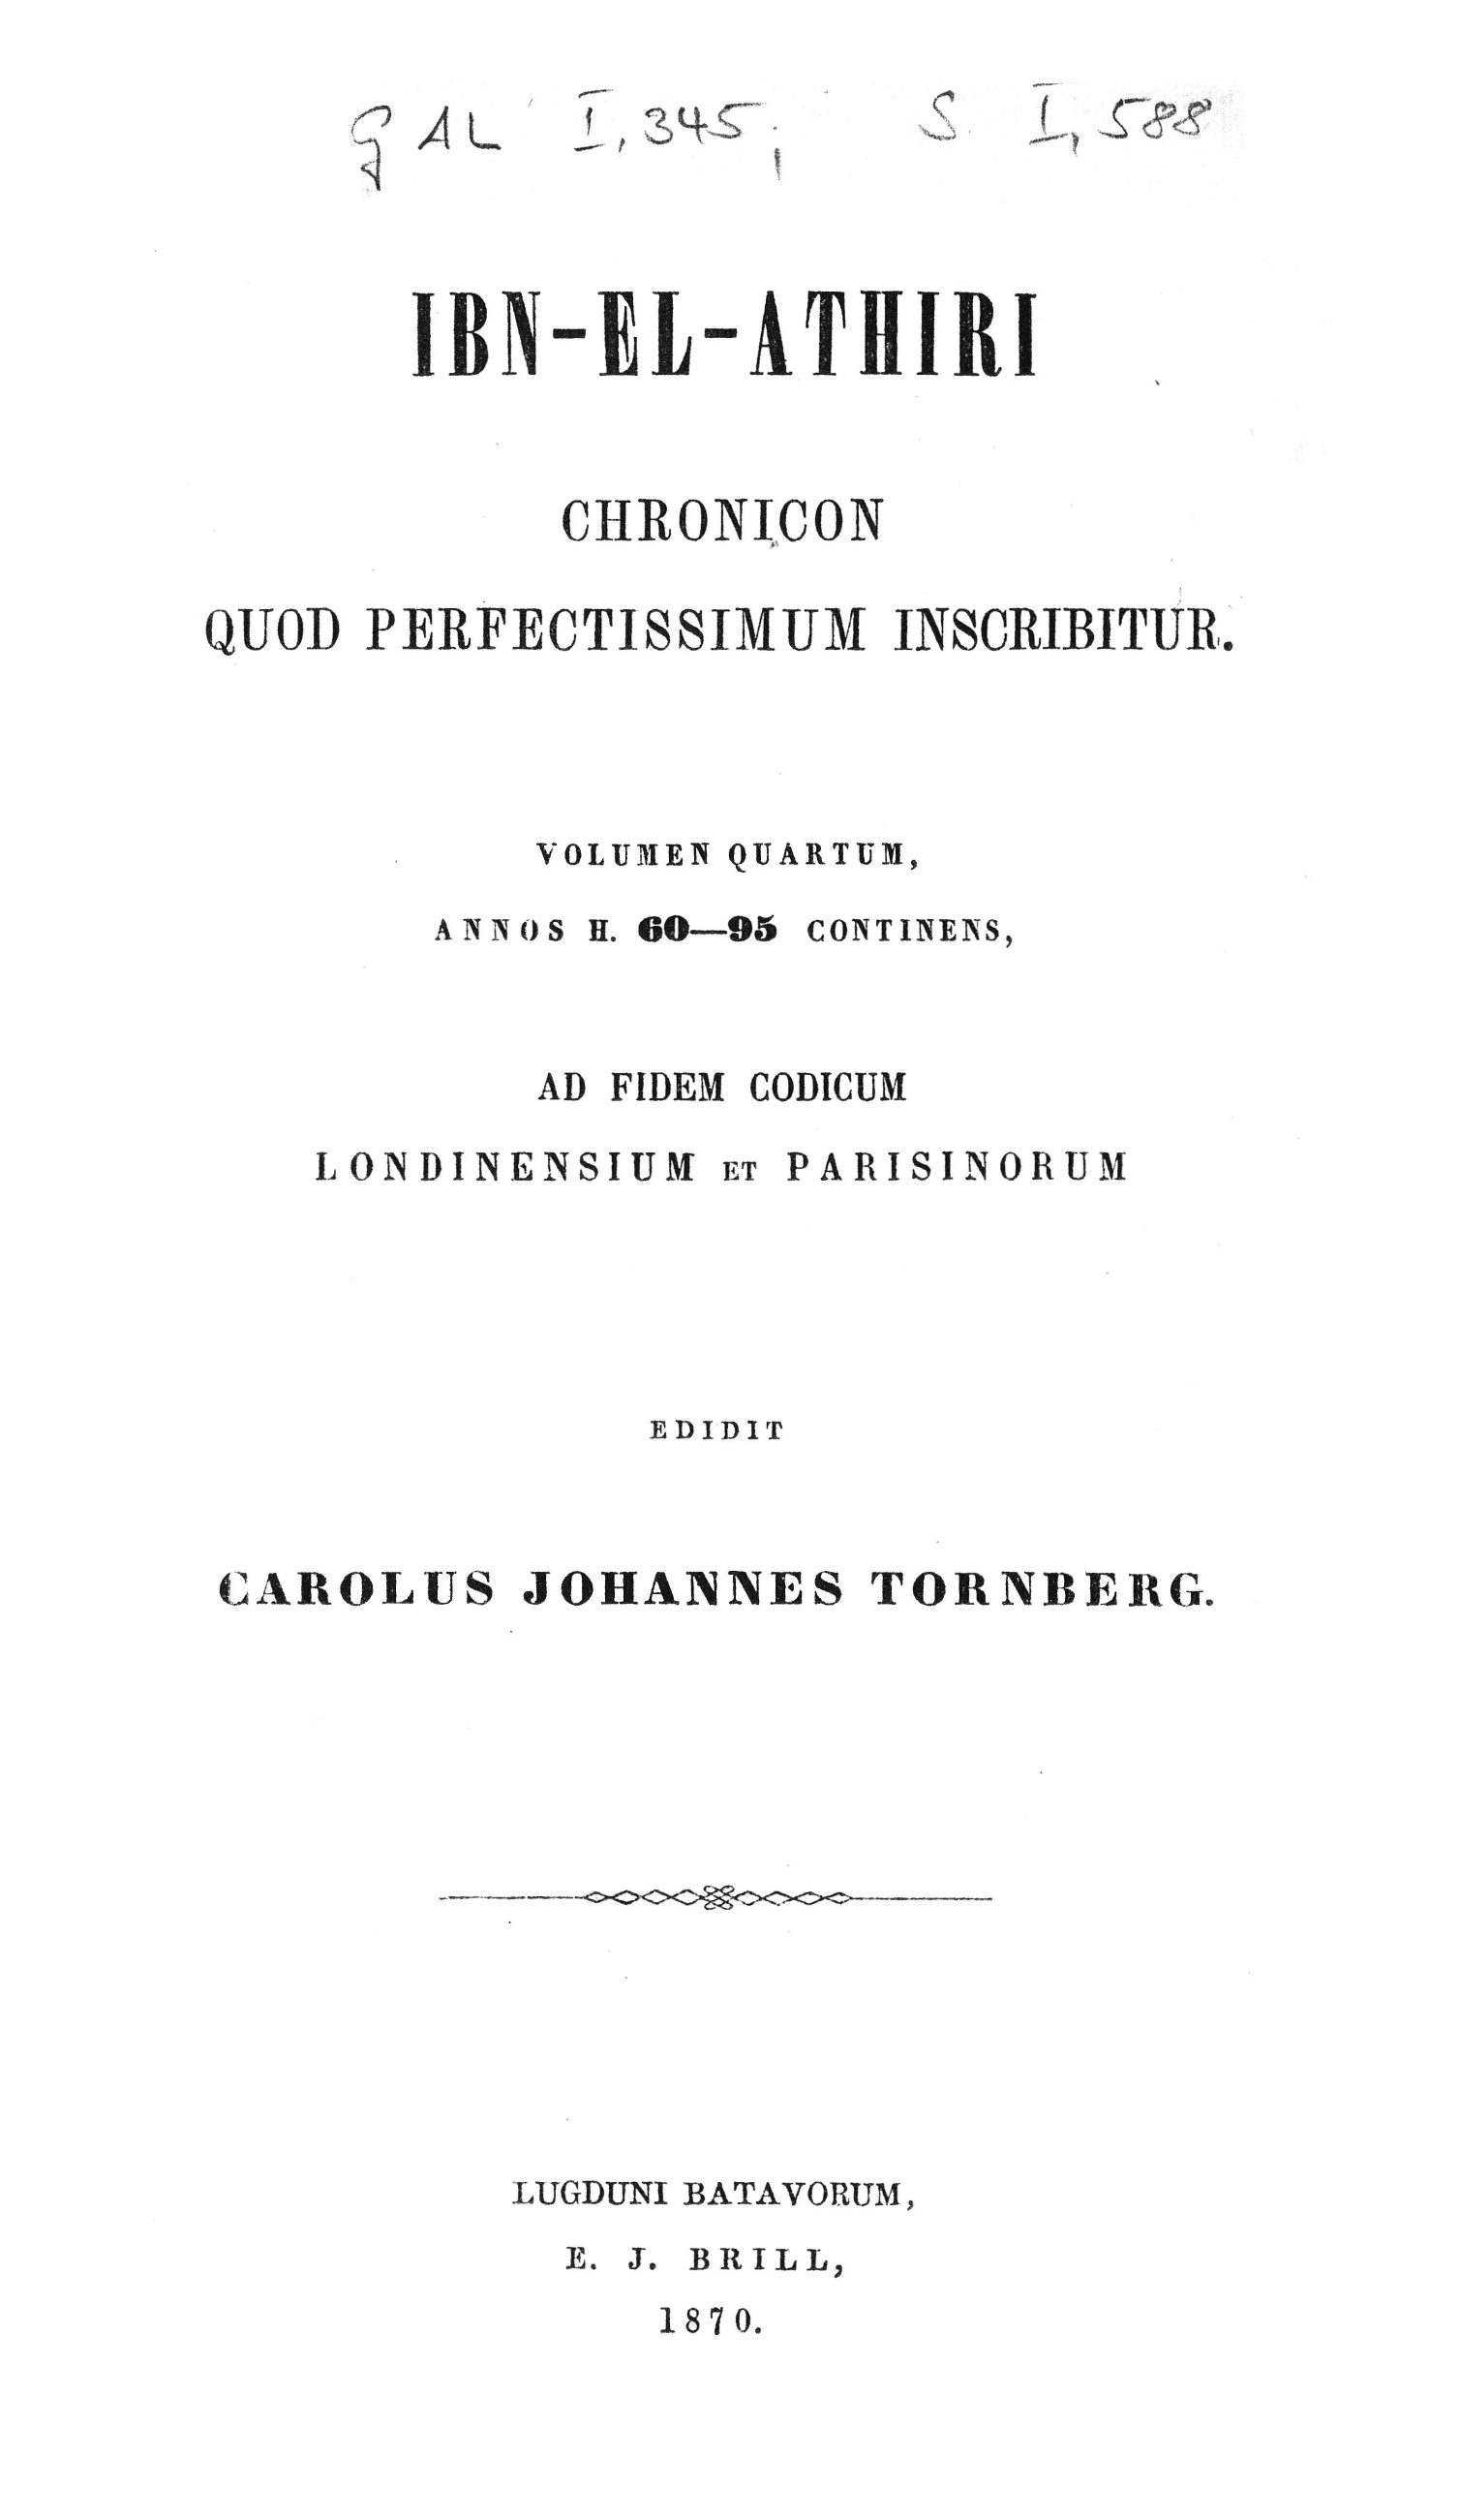 GAL I, 345; S I, 588
IBN-EL-ATHIRI
CHRONICON
QUOD PERFECTISSIMUM INSCRIBITUR.
VOLUMEN QUARTUM,
ANNOS H. 60—95 CONTINENS,
AD FIDEM CODICUM
LONDINENSIUM ET PARISINORUM
EDIDIT
CAROLUS JOHANNES TORNBERG.
LUGDUNI BATAVORUM,
E. J. BRILL,
1870.